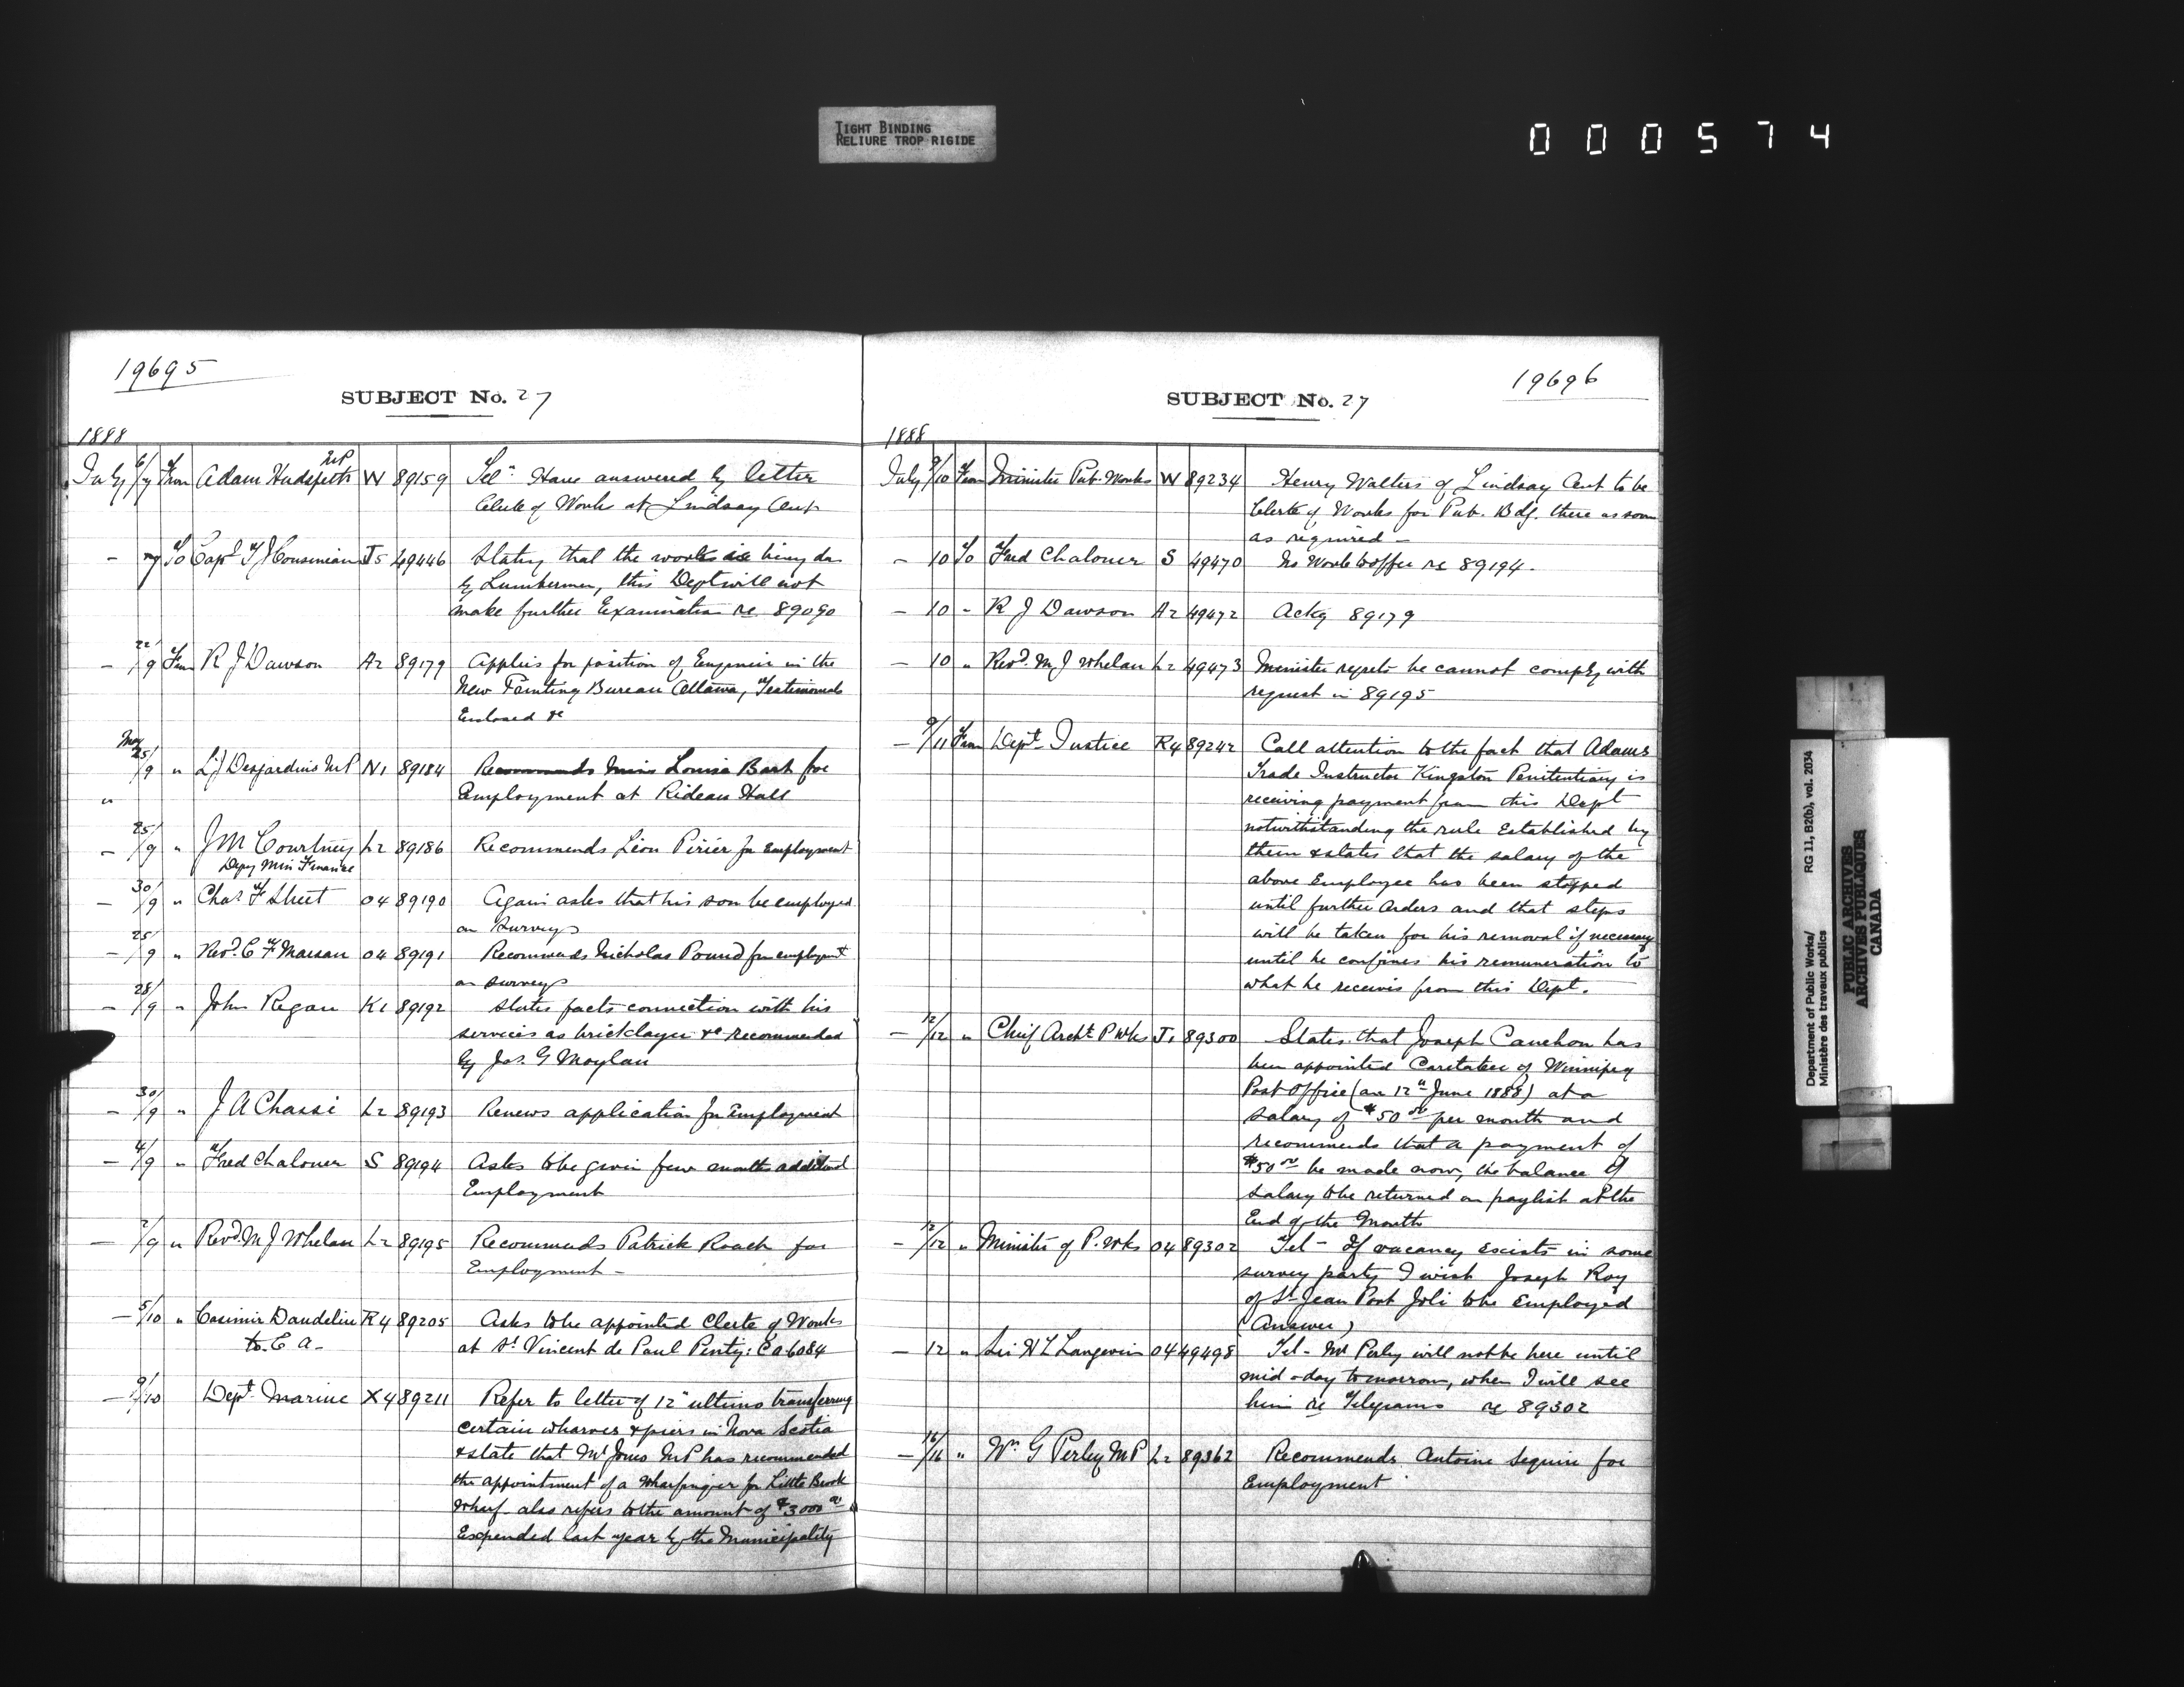 TIGHT BINDING
RELIURE TROP RIGIDE
000574
19695
SUBJECT No. 27
1888
July 6/7 From Adam Hudspeth MP W 89159 Tel- Have answered by letter
Clerk of Works at Lindsay Ont
- 7 To Capt T J Cousineau J5 49446 Stating that the work is being done
by Lumbermen, this Dept will not
make further Examination re 89090
- 22/9 From R J Dawson A2 89179 Applies for position of Engineer in the
New Printing Bureau Ottawa, Testimonials
Enclosed &c
- May 25/9 " L J Desjardins MP N1 89184 Recommends Miss Louisa Bart for
" Employment at Rideau Hall
- 25/9 " J M Courtney L2 89186 Recommends Léon Pirier for Employment
Depy Min Finance
- 30/9 " Chas F Street O4 89190 Again asks that his son be employed
on Surveys
- 25/9 " Revd. C F Marsan O4 89191 Recommends Nicholas Pound for employment
on surveys
- 28/9 " John Regan K1 89192 States facts connection with his
services as bricklayer &c recommended
by Jas. G Moylan
- 30/9 " J A Chassé L2 89193 Renews application for Employment
- 4/9 " Fred Chaloner S 89194 Asks to be given few months additional
Employment
- 2/9 " Revd. M J Whelan L2 89195 Recommends Patrick Roach for
Employment -
- 5/10 " Casimir Dandelin R4 89205 Asks to be appointed Clerk of Works
to C A - at St. Vincent de Paul Penty: Ca 6084
- 9/10 Dept Marine X4 89211 Refer to letter of 12" ultimo transferring
certain wharves & piers in Nova Scotia
& state that Mr Jones MP has recommended
the appointment of a Wharfinger for Little Brook
Wharf also refers to the amount of $3000.00
Expended last year by the Municipality
19696
SUBJECT No. 27
1888
July 9/10 From Minister Pub. Works W 89234 Henry Walters of Lindsay Ont to be
Clerk of Works for Pub. Bdg. there as soon
as required -
- 10 To Fred Chaloner S 49470 No Work to offer re 89194.
- 10 " R J Dawson A2 49472 Ackg 89179
- 10 " Revd. M J Whelan L2 49473 Minister regrets he cannot comply with
request in 89195
- 9/11 From Dept Justice R4 89242 Call attention to the fact that Adams
Trade Instructor Kingston Penitentiary is
receiving payment from this Dept
notwithstanding the rule Established by
them & states that the salary of the
above Employee has been stopped
until further Orders and that steps
will be taken for his removal if necessary
until he confines his remuneration to
what he receives from this Dept.
- 12/12 " Chief Archt P Wks J1 89300 States that Joseph Cauchon has
been appointed Caretaker of Winnipeg
Post Office (on 12th June 1888) at a
salary of $50.00 per month and
recommends that a payment of
$50.00 be made now, the balance of
salary to be returned on paylist at the
End of the Month
- 12/12 " Minister of P. Wks O4 89302 Tel - If vacancy exists in some
survey party I wish Joseph Roy
of St Jean Port Joli to be Employed
(Answer)
- 12 " Sir H L Langevin O4 49498 Tel - Mr Perley will not be here until
mid-day tomorrow, when I will see
him re Telegrams re 89302
- 16/16 " Wm G Perley MP L2 89362 Recommends Antoine Seguin for
Employment
Department of Public Works/ RG 11, B2(b), vol. 2034
Ministère des travaux publics
PUBLIC ARCHIVES
ARCHIVES PUBLIQUES
CANADA